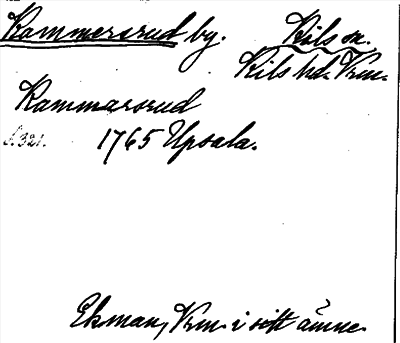 Rammersrud by. Kils sn.
Kils hd. Vrm.
Rammarsrud
s. 321. 1765 Upsala.
Ekman, Vrm. i sitt ämne